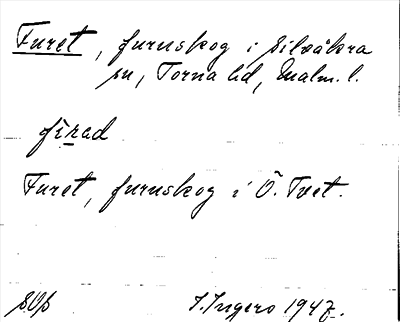 Furet, furuskog i Silvåkra
sn, Torna hd, Malm. l.
fìrad
Furet, furuskog i Ö. Tvet.
I. Ingers 1947.